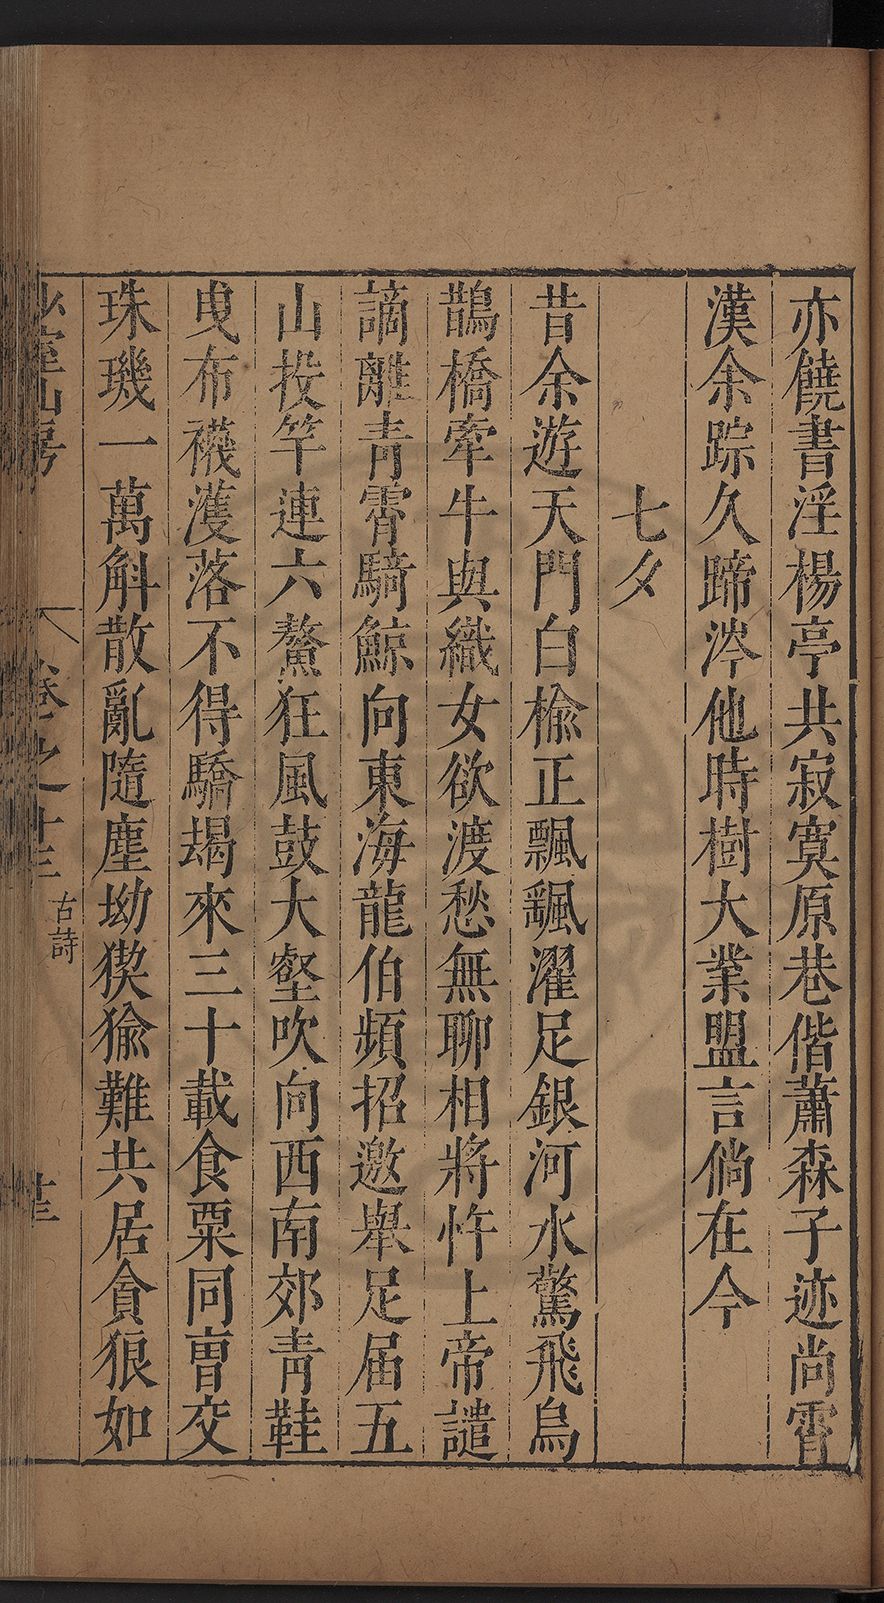 亦饒書淫楊亭共寂寞原巷偕蕭森子迹尚霄
漢余踪久蹄涔他時樹大業盟言倘在今
七夕
昔余遊天門白榆正飄颻濯足銀河水驚飛烏
鵲橋牽牛與織女欲渡愁無聊相將忤上帝譴
謫離青霄騎鯨向東海龍伯頻招邀舉足届五
山投竿連六鰲狂風鼓大壑吹向西南郊青鞋
曳布襪濩落不得驕朅來三十載食粟同曺交
珠璣一萬斛散亂隨塵坳猰㺄難共居貪狼如
山房
卷之十三
古詩